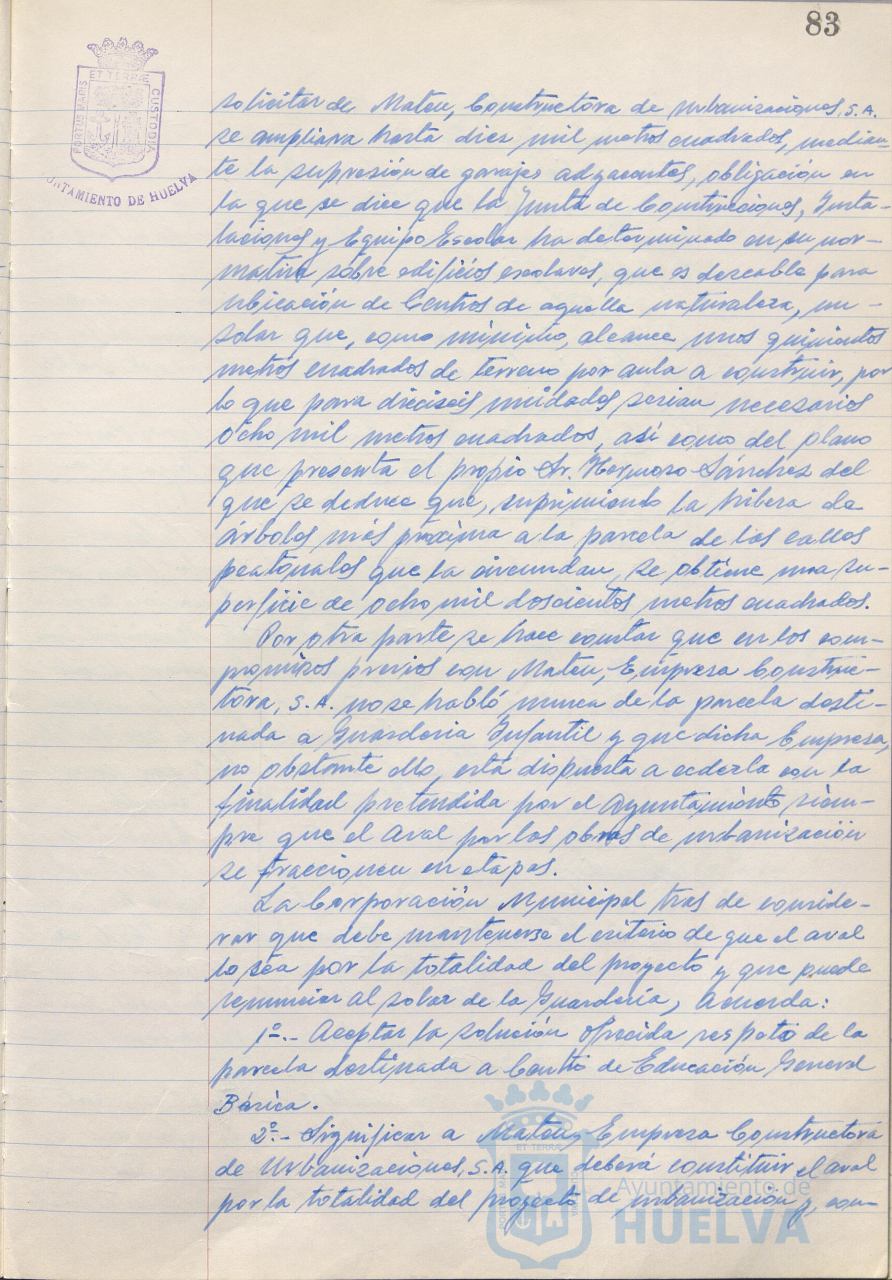 83
ET TERRÆ
PORTUS MARIS
CUSTODIA
UNTAMIENTO DE HUELVA
solicitar de Mateu, Constructora de Urbanizaciones, S.A.
se ampliara hasta diez mil metros cuadrados, median-
te la supresión de garajes adyacentes, obligación en
la que se dice que la Junta de Construcciones, Insta-
laciones y Equipo Escolar ha determinado en su nor-
mativa sobre edificios escolares, que es deseable para
ubicación de Centros de aquella naturaleza, un
solar que, como mínimo, alcance unos quinientos
metros cuadrados de terreno por aula a construir, por
lo que para dieciseis unidades serian necesarios
ocho mil metros cuadrados, así como del plano
que presenta el propio Sr. Hermoso Sánchez del
que se deduce que, suprimiendo la hilera de
árboles más próxima a la parcela de las calles
peatonales que la circundan, se obtiene una su-
perficie de ocho mil doscientos metros cuadrados.
Por otra parte se hace constar que en los com-
promisos previos con Mateu, Empresa Construc-
tora, S.A. no se habló nunca de la parcela desti-
nada a Guardería Infantil y que dicha Empresa,
no obstante ello, está dispuesta a cederla con la
finalidad pretendida por el Ayuntamiento siem-
pre que el aval por las obras de urbanización
se fraccionen en etapas.
La Corporación Municipal tras de conside-
rar que debe mantenerse el criterio de que el aval
lo sea por la totalidad del proyecto y que puede
renunciar al solar de la Guardería, acuerda:
1º.- Aceptar la solución ofrecida respeto de la
parcela destinada a Centro de Educación General
Básica.
2º.- Significar a Mateu, Empresa Constructora
de Urbanizaciones, S.A. que deberá constituir el aval
por la totalidad del proyecto de urbanización y, con-
Ayuntamiento de
HUELVA